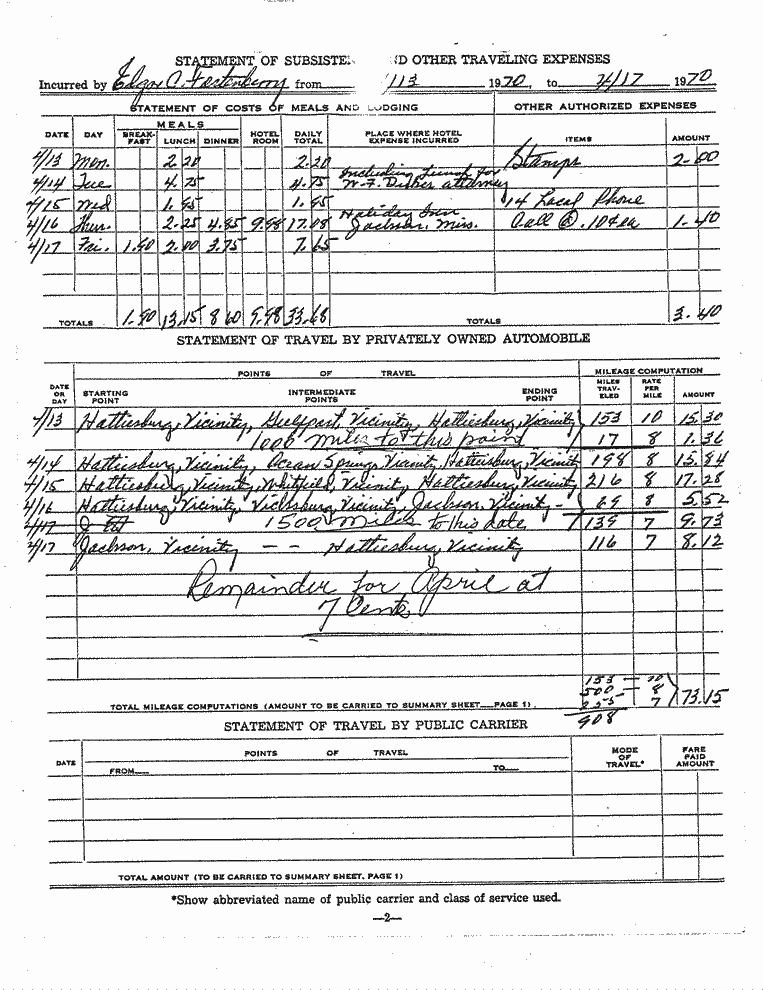 STATEMENT OF SUBSISTEN ND OTHER TRAVELING EXPENSES
Incurred by Edgar C. Fortenberry from /13 1970, to 4/17 1970
STATEMENT OF COSTS OF MEALS AND LODGING OTHER AUTHORIZED EXPENSES
DATE DAY MEALS BREAK-FAST LUNCH DINNER HOTEL ROOM DAILY TOTAL PLACE WHERE HOTEL EXPENSE INCURRED ITEMS AMOUNT
4/13 Mon. 2.20 2.20 Stamps 2.00
4/14 Tue 4.75 4.75 Including Lunch for W.F. attorney
4/15 Wed 1.95 1.95 14 Local Phone
4/16 Thur. 2.25 4.85 9.98 17.08 Holiday Inn Jackson, Miss. Call @ .10¢ ea 1.40
4/17 Fri. 1.90 2.00 3.75 7.65
TOTALS 1.90 13.15 8 60 9.98 33.68 TOTALS 3.40
STATEMENT OF TRAVEL BY PRIVATELY OWNED AUTOMOBILE
DATE OR DAY POINTS OF TRAVEL MILEAGE COMPUTATION
STARTING POINT INTERMEDIATE POINTS ENDING POINT MILES TRAV-ELED RATE PER MILE AMOUNT
4/13 Hattiesburg, Vicinity, Gulfport, Vicinity, Hattiesburg, Vicinity 153 10 15.30
1000 miles to this point 17 8 1.36
4/14 Hattiesburg, Vicinity, Ocean Springs, Vicinity, Hattiesburg, Vicinity 198 8 15.84
4/15 Hattiesburg, Vicinity, Whitfield, Vicinity, Hattiesburg, Vicinity 216 8 17.28
4/16 Hattiesburg, Vicinity, Vicksburg, Vicinity, Jackson, Vicinity - 69 8 5.52
4/17 1500 miles to this date 139 7 9.73
4/17 Jackson, Vicinity - - Hattiesburg, Vicinity 116 7 8.12
Remainder for April at
7 Cents
153 - 10
500 - 8
255 7
TOTAL MILEAGE COMPUTATIONS (AMOUNT TO BE CARRIED TO SUMMARY SHEET PAGE 1) 73.15
908
STATEMENT OF TRAVEL BY PUBLIC CARRIER
DATE POINTS OF TRAVEL MODE OF TRAVEL* FARE PAID AMOUNT
FROM TO
TOTAL AMOUNT (TO BE CARRIED TO SUMMARY SHEET, PAGE 1)
*Show abbreviated name of public carrier and class of service used.
—2—